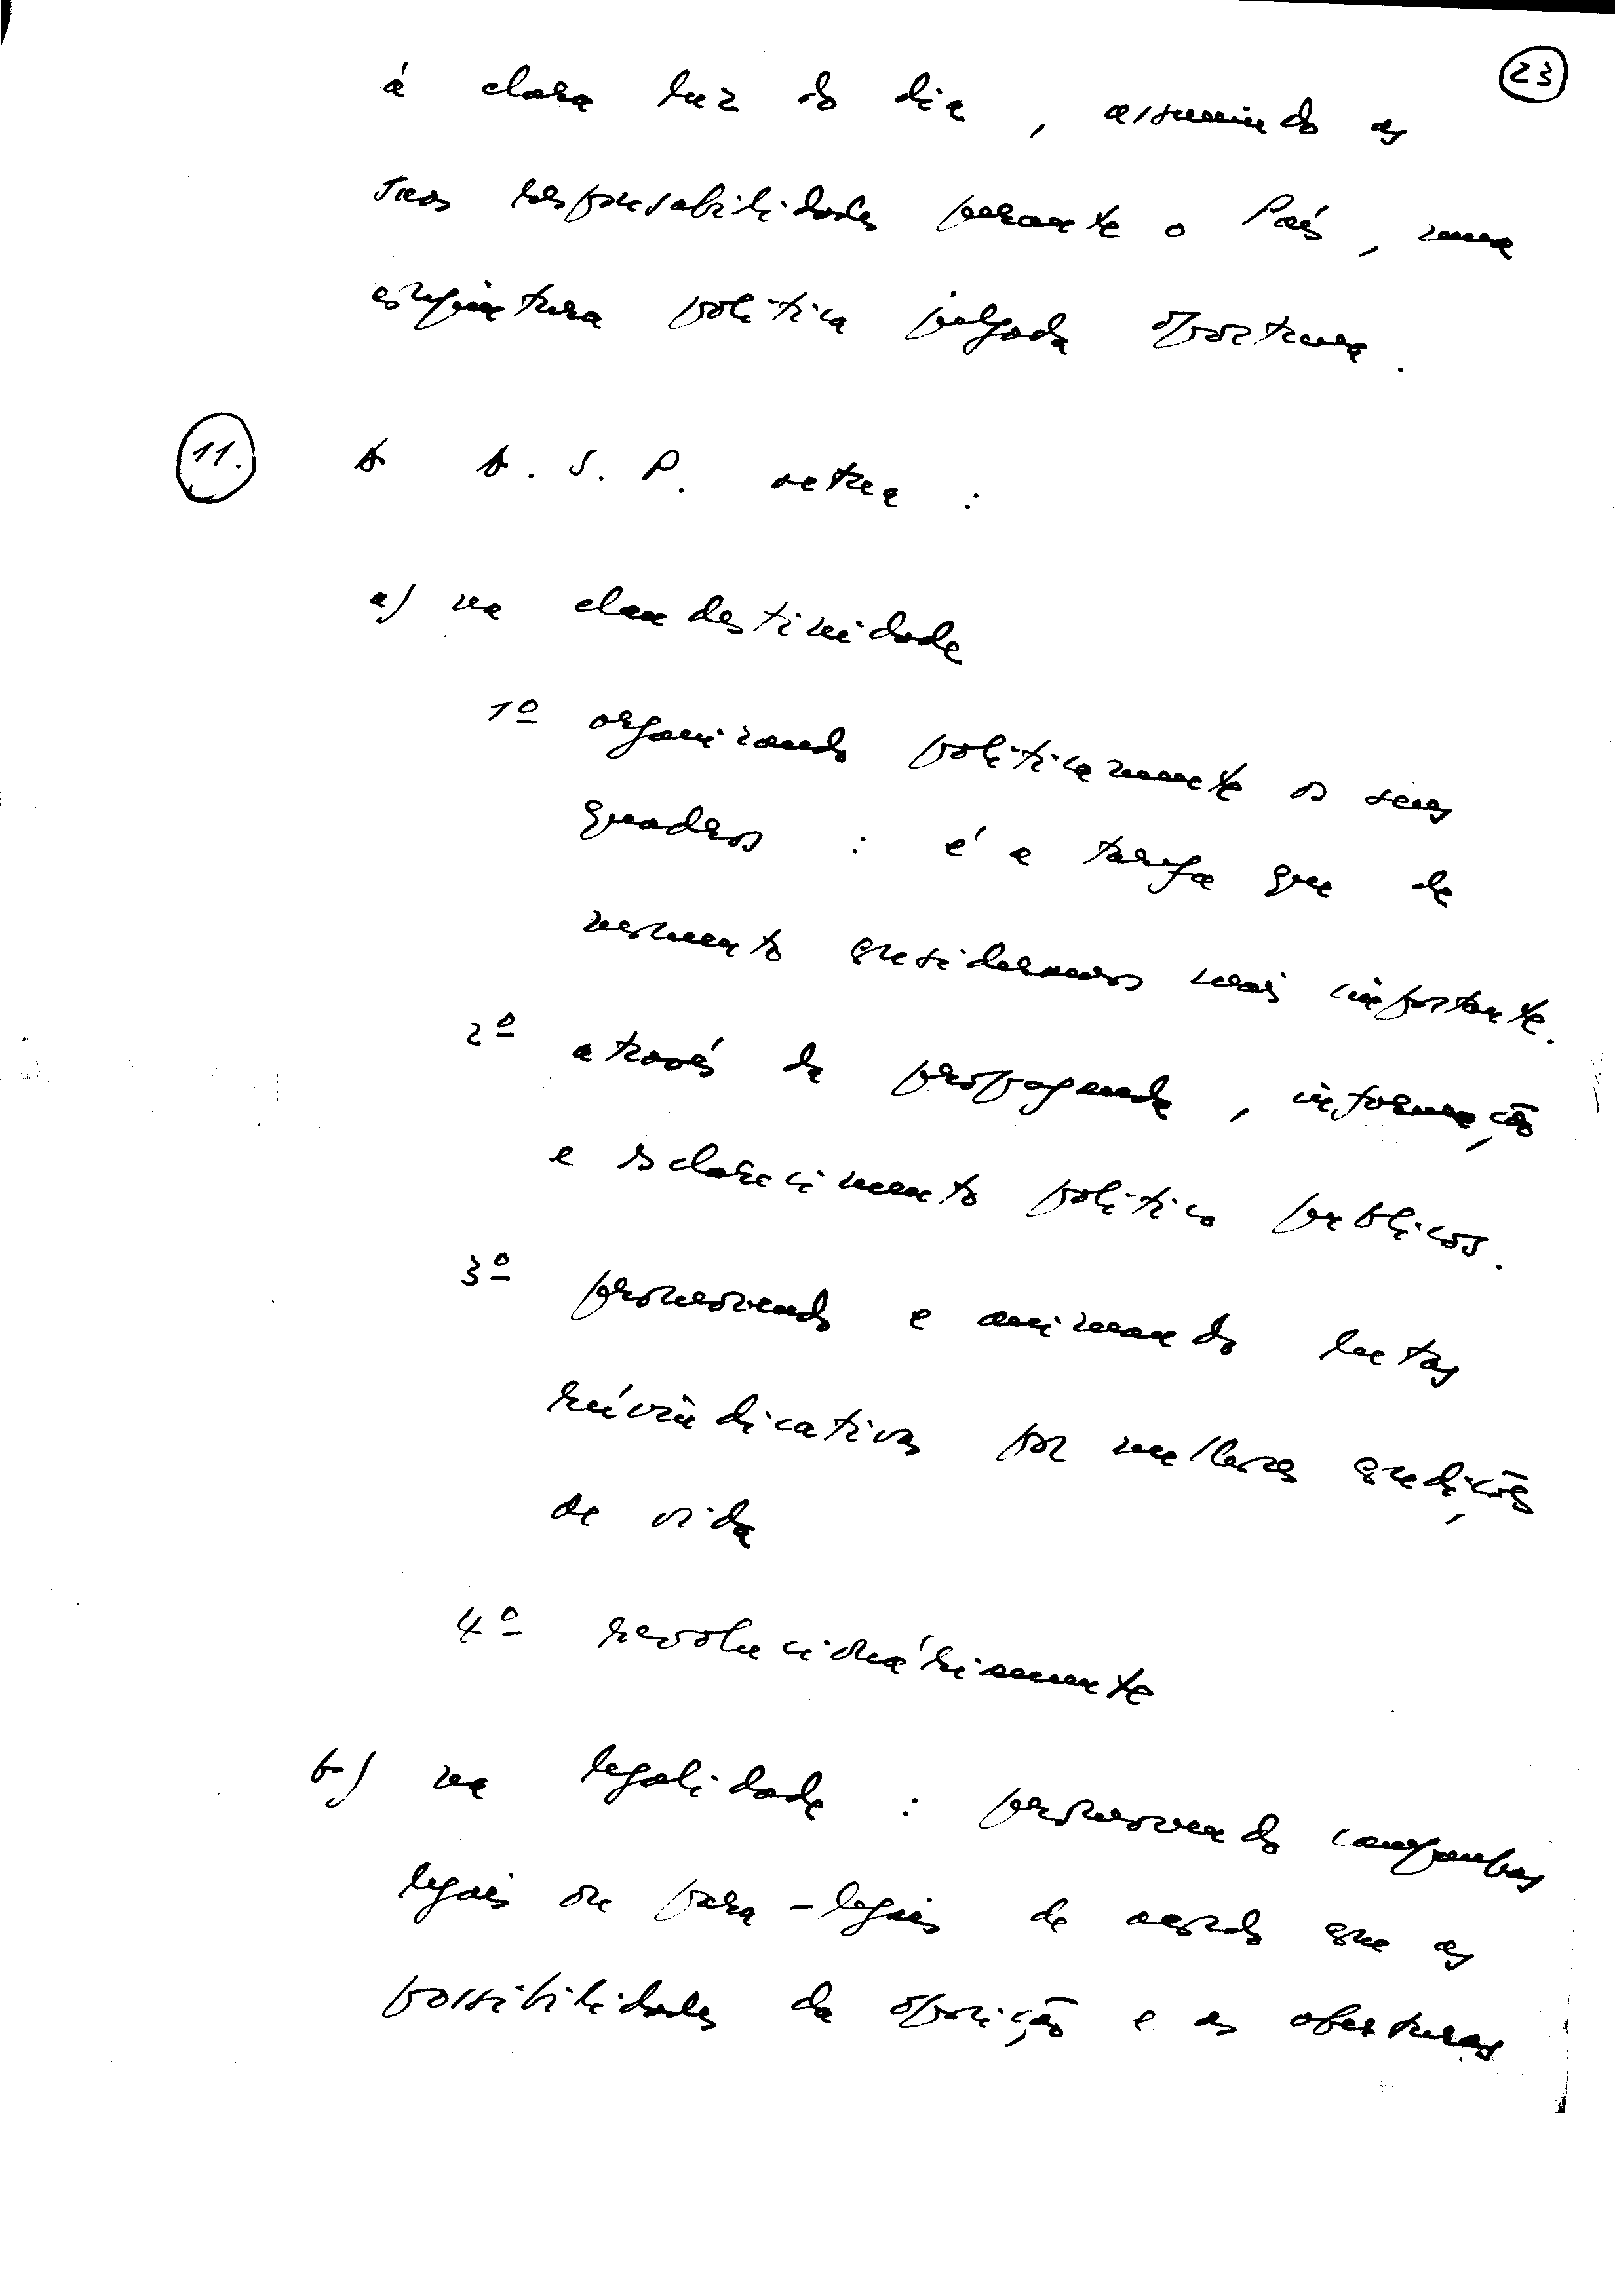 23
á clara luz do dia, assumindo as
suas responsabilidades perante o País, numa
conjuntura política julgada oportuna.
11. A A.S.P. actua :
a) na clandestinidade
1º organizando politicamente os seus
quadros : é a tarefa que de
momento consideramos mais importante.
2º através da propaganda, informação
e esclarecimento político públicos.
3º promovendo e animando lutas
reivindicativas por melhores condições
de vida
4º revolucionáriamente
b) na legalidade : promovendo campanhas
legais ou para-legais de acordo que as
possibilidades da oposição e as aberturas